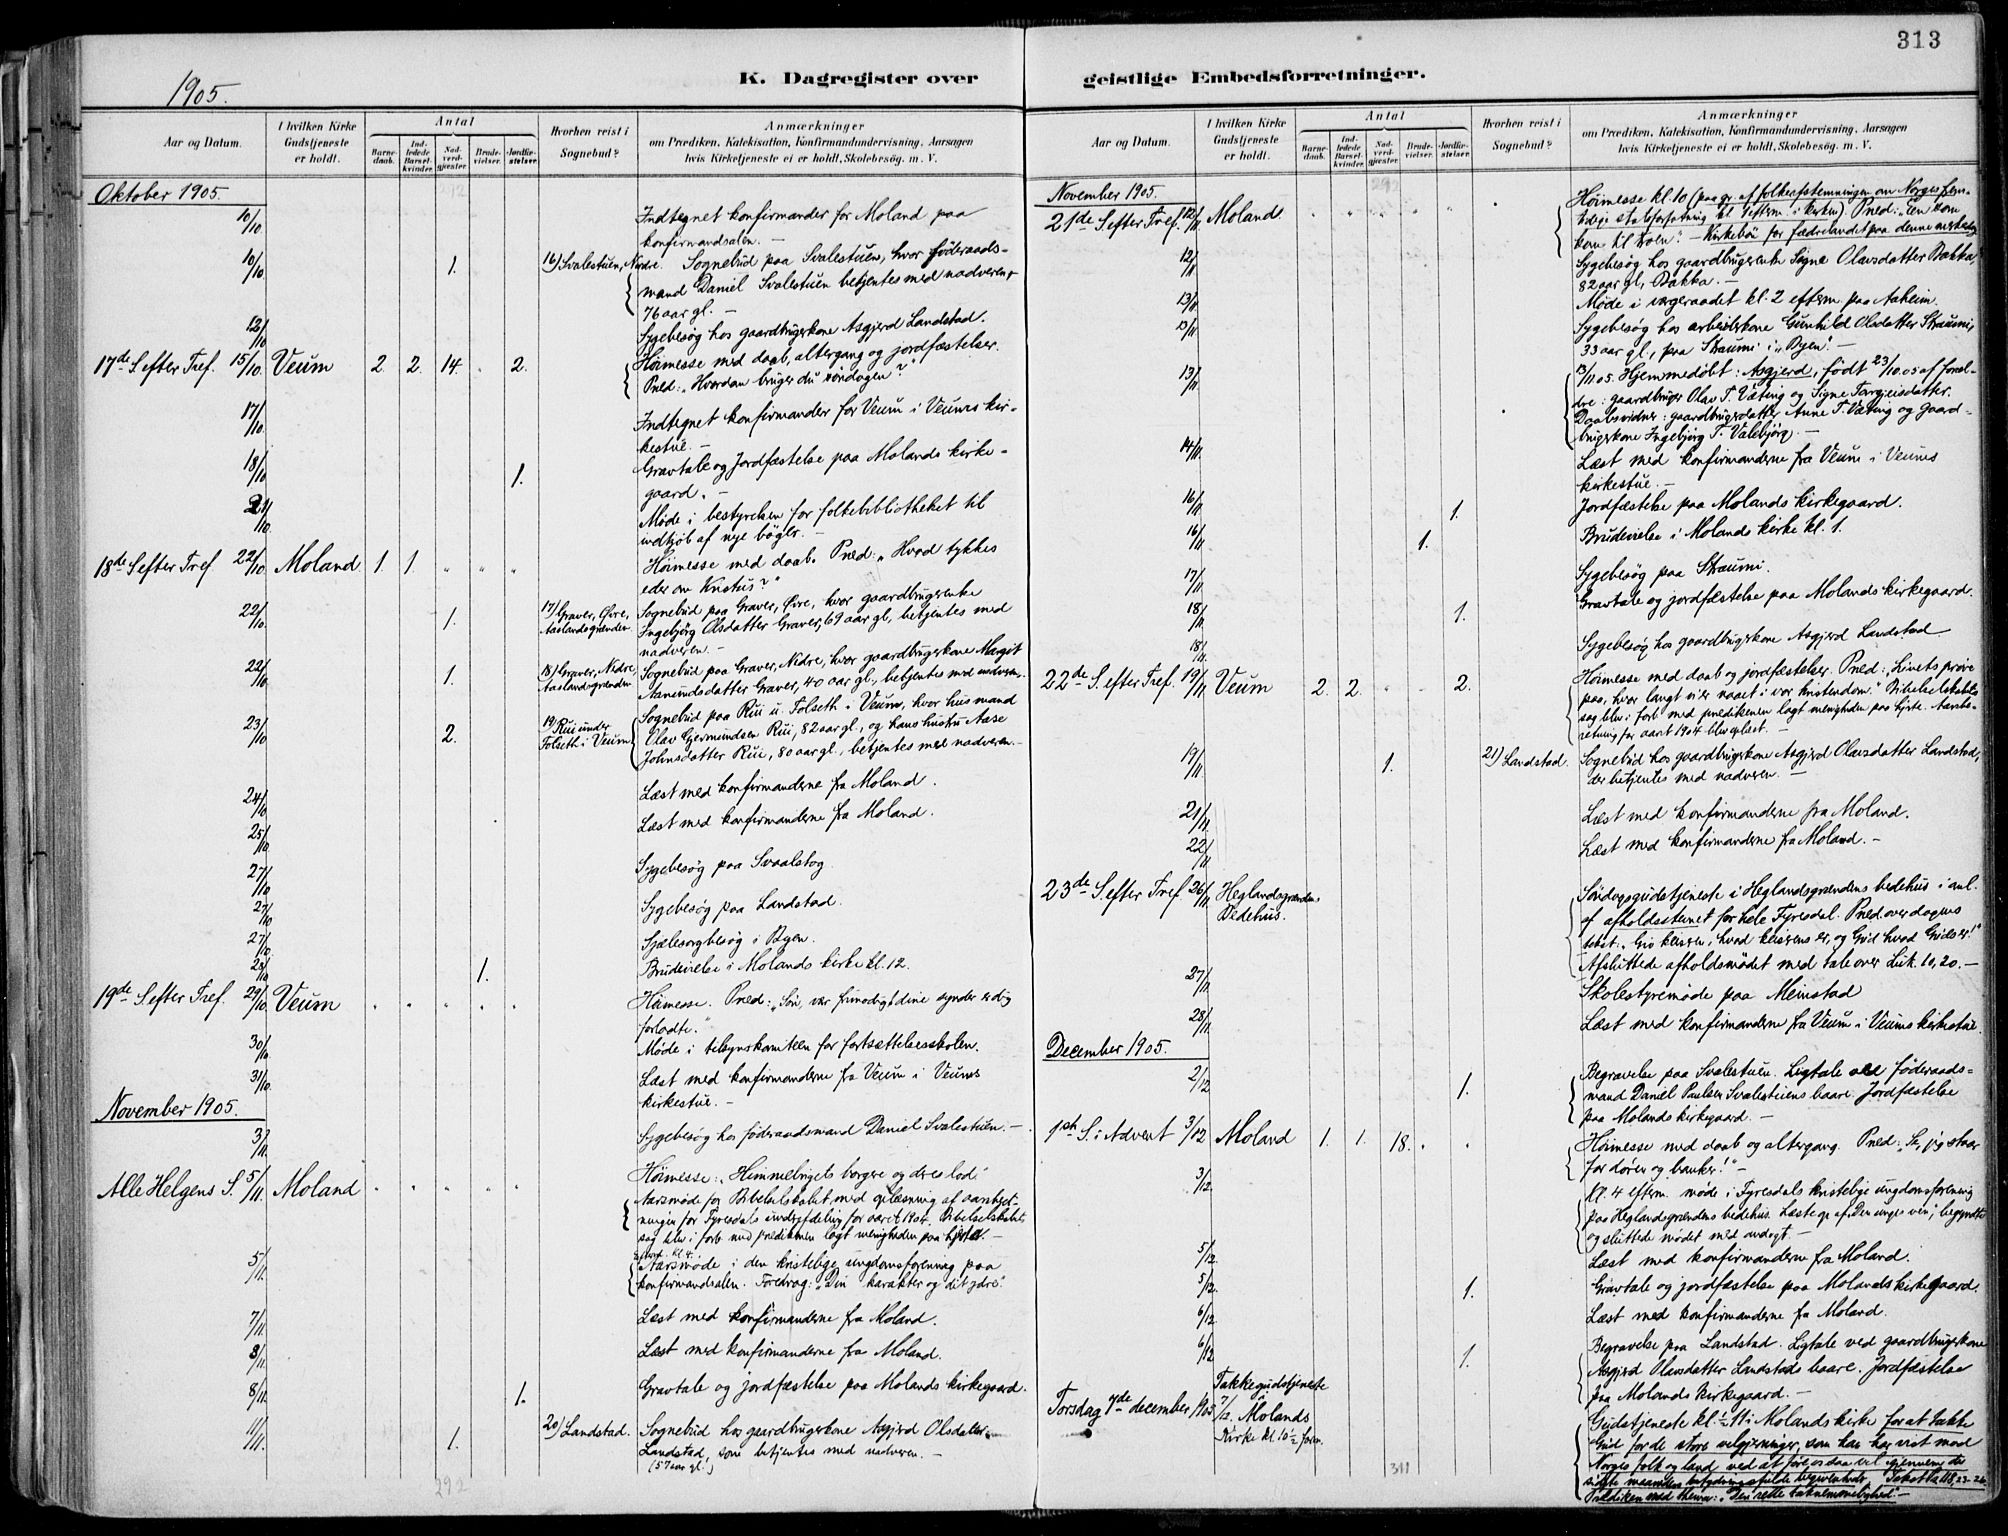 313
1905.
K. Dagregister over geistlige Embedsforretninger.
Aar og Datum.
I hvilken Kirke Gudstjeneste er holdt.
Antal
Barnedaab.
Indledede Barselkvinder.
Nadverdgjester.
Brudevielser.
Jordfæstelser.
Hvorhen reist i Sognebud?
Anmærkninger
om Prædiken, Katekisation, Konfirmandundervisning, Aarsagen
hvis Kirketjeneste ei er holdt, Skolebesøg. m. V.
Oktober 1905.
10/10 Indtegnet konfirmander for Moland paa
konfirmandsalen. —
10/10 1. 16) Svalestuen, Nordre. Sognebud paa Svalestuen, hvor føderaads-
mand Daniel Svalestuen betjentes med nadveren,
76 aar gl. —
12/10 Sygebesøg hos gaardbrugerkone Asgjerd Landstad.
17de S. efter Tref. 15/10 Veum 2 2. 14. 2. Høimesse med daab, altergang og jordfæstelser.
Præd: „Hvordan bruger du søndagen?"
17/10 Indtegnet konfirmander for Veum i Veums kir-
kestue —
18/10 1. Gravtale og Jordfæstelse paa Molands kirke-
gaard. —
21/10 Møde i bestyrelsen for folkebibliotheket til
indkjøb af nye bøger. —
18de S. efter Tref 22/10 Moland 1. 1. " " " Høimesse med daab. Præd: „Hvad tykkes
eder om Kristus?"
22/10 1. 17) Graver, Øvre, Aaslandsgrænden. Sognebud paa Graver, Øvre, hvor gaardbrugerenke
Ingebjørg Olsdatter Graver, 69 aar gl., betjentes med
nadveren. —
22/10 1. 18) Graver, Nedre, Aaslandsgrænden Sognebud paa Graver, Nedre, hvor gaardbrugerkone Margit
Aamundsdatter Graver, 40 aar gl., betjentes med nadveren.
23/10 2. 19) Rui under Folseth i Veum Sognebud paa Rui u. Folseth i Veum, hvor husmand
Olav Gjermundsen Rui, 82 aar gl., og hans hustru Aase
Johnsdatter Rui, 80 aar gl., betjentes med nadveren. —
24/10 Læst med konfirmanderne fra Moland.
25/10 Læst med konfirmanderne fra Moland.
27/10 Sygebesøg paa Svaalstog
27/10 Sygebesøg paa Landstad.
27/10 Sjælesorgbesøg i Byen.
28/10 1. Brudevielse i Molands kirke kl. 12.
19de S. efter Tref. 29/10 Veum Høimesse. Præd: „Søn, vær frimodig, dine synder er dig
forladte."
30/10 Møde i tilsynskomiteen for fortsættelsesskolen.
31/10. Læst med konfirmanderne fra Veum i Veums
kirkestue. —
November 1905.
3/11. Sygebesøg hos føderaadsmand Daniel Svalestuen. —
Alle Helgens S. 5/11. Moland Høimesse: „Himmelrigets borgere og deres lod"
Aarsmøde for Bibelselskabet med oplæsning af aarsberet-
ningen for Tyresdals underafdeling for aaret 1904. Bibelselskabets
sag blev i forb. med prædikenen lagt menigheden paa hjerte. —
5/11. Aarsmøde i den kristelige ungdomsforening paa
konfirmandsalen. Foredrag: „Din karakter og dit ydre."
7/11. Læst med konfirmanderne fra Moland.
8/11. Læst med konfirmanderne fra Moland.
8/11 1. Gravtale og jordfæstelse paa Molands kirkegaard.
11/11. 1. 20) Landstad. Sognebud hos gaardbrugerkone Asgjerd Olsdatter
Landstad, som betjentes med nadveren. —
(57 aar gl.)
292
Aar og Datum.
I hvilken Kirke Gudstjeneste er holdt.
Antal
Barnedaab.
Indledede Barselkvinder.
Nadverdgjester.
Brudevielser.
Jordfæstelser.
Hvorhen reist i Sognebud?
Anmærkninger
om Prædiken, Katekisation, Konfirmandundervisning, Aarsagen
hvis Kirketjeneste ei er holdt, Skolebesøg. m. V.
292
November 1905.
21de S. efter Tref. 12/11 Moland. Høimesse kl. 10 (paa gr. af folkeafstemningen om Norges frem-
tidige statsforfatning kl. 1 efterm. i kirken). Præd: „Een kom
kom til troen." — Kirkebøn for fædrelandet paa denne
12/11 Sygebesøg hos gaardbrugerenke Signe Olavsdatter Bakka,
82 aar gl., Bakka. —
13/11 Møde i værgeraadet kl. 2 efterm. paa Aaheim.
13/11 Sygebesøg hos arbeiderkone Gunhild Olsdatter Straumi,
33 aar gl., paa Straumi i „Byen". —
13/11 13/11 05. Hjemmedøbt: Asgjerd, født 23/10.05 af foræl-
dre: gaardbruger Olav T. Væting og Signe Targjeisdatter.
Daabsvidner: gaardbrugerdatter Anne T. Væting og Gaard-
brugerkone Ingebjørg T. Valebjørg. —
14/11. Læst med konfirmanderne fra Veum i Veums
kirkestue. —
16/11. 1. Jordfæstelse paa Molands kirkegaard.
16/11 1. Brudevielse i Molands kirke kl. 1.
17/11 Sygebesøg paa Straumi.
18/11. 1. Gravtale og jordfæstelse paa Molands kirkegaard.
18/11 Sygebesøg hos gaardbrugerkone Asgjerd Landstad
22de S. efter Tref. 19/11 Veum 2. 2. 2. Høimesse med daab og jordfæstelser. Præd: „Livets prøve
paa, hvor langt vi er naaet i vor kristendom." Bibelselskabets
sag blev i forb. med prædikenen lagt menigheden paa hjerte. Aarsbe-
retning for aaret 1904 blev oplæst. —
19/11. 1. 21) Landstad. Sognebud hos gaardbrugerkone Asgjerd Olavsdatter Landstad,
der betjentes med nadveren. —
21/11. Læst med konfirmanderne fra Moland.
22/11 Læst med konfirmanderne fra Moland. —
23de S. efter Tref. 26/11. Heglandsgrændens Bedehus. Søndagsgudstjeneste i Heglandsgrændens bedehus i anl.
af afholdsstevnet for hele Tyresdal. Præd. over dagens
tekst: „Giv keiseren, hvad keiserens er, og Gud hvad Guds er!"
Afsluttede afholdsmødet med tale over Luk. 10, 20. —
27/11. Skolestyremøde paa Meinstad
28/11. Læst med konfirmanderne fra Veum i Veums kirkestue.
December 1905.
2/12 1. Begravelse paa Svalestuen. Ligtale ved føderaads-
mand Daniel Paulsen Svalestuens baare. Jordfæstelse
paa Molands kirkegaard. —
1ste S. i Advent 3/12 Moland 1. 1. 18. Høimesse med daab og altergang. Præd: „Se, jeg staar
for døren og banker!" —
3/12. Kl. 4 efterm. møde i Tyresdals kristelige ungdomsforening
paa Heglandsgrændens bedehus. Læste op af „Den unges ven", begyndte
og sluttede mødet med andagt. —
5/12. Læst med konfirmanderne fra Moland.
5/12. 1. Gravtale og jordfæstelse paa Molands kirkegaard.
6/12. Læst med konfirmanderne fra Moland.
6/12 1. Begravelse paa Landstad. Ligtale ved gaardbrugerkone
Asgjerd Olavsdatter Landstads baare. Jordfæstelse
paa Molands kirkegaard. —
Torsdag 7de december 1905 7/12. Takkegudstjeneste Molands Kirke kl. 10½ form. Gudstjeneste kl. ½ 11 i Molands kirke for at takke
Gud for de store velgjerninger, som han har vist mod
Norges folk og land ved at føre os saa vel gjennem de
sidste maaneders betydningsfulde begivenheder. Tekst Ps. 118, 23-26.
Prædiken med thema: „Den rette taknemmelighed". —
311